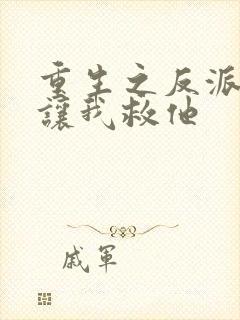 重生之反派
讓我救他
戚軍